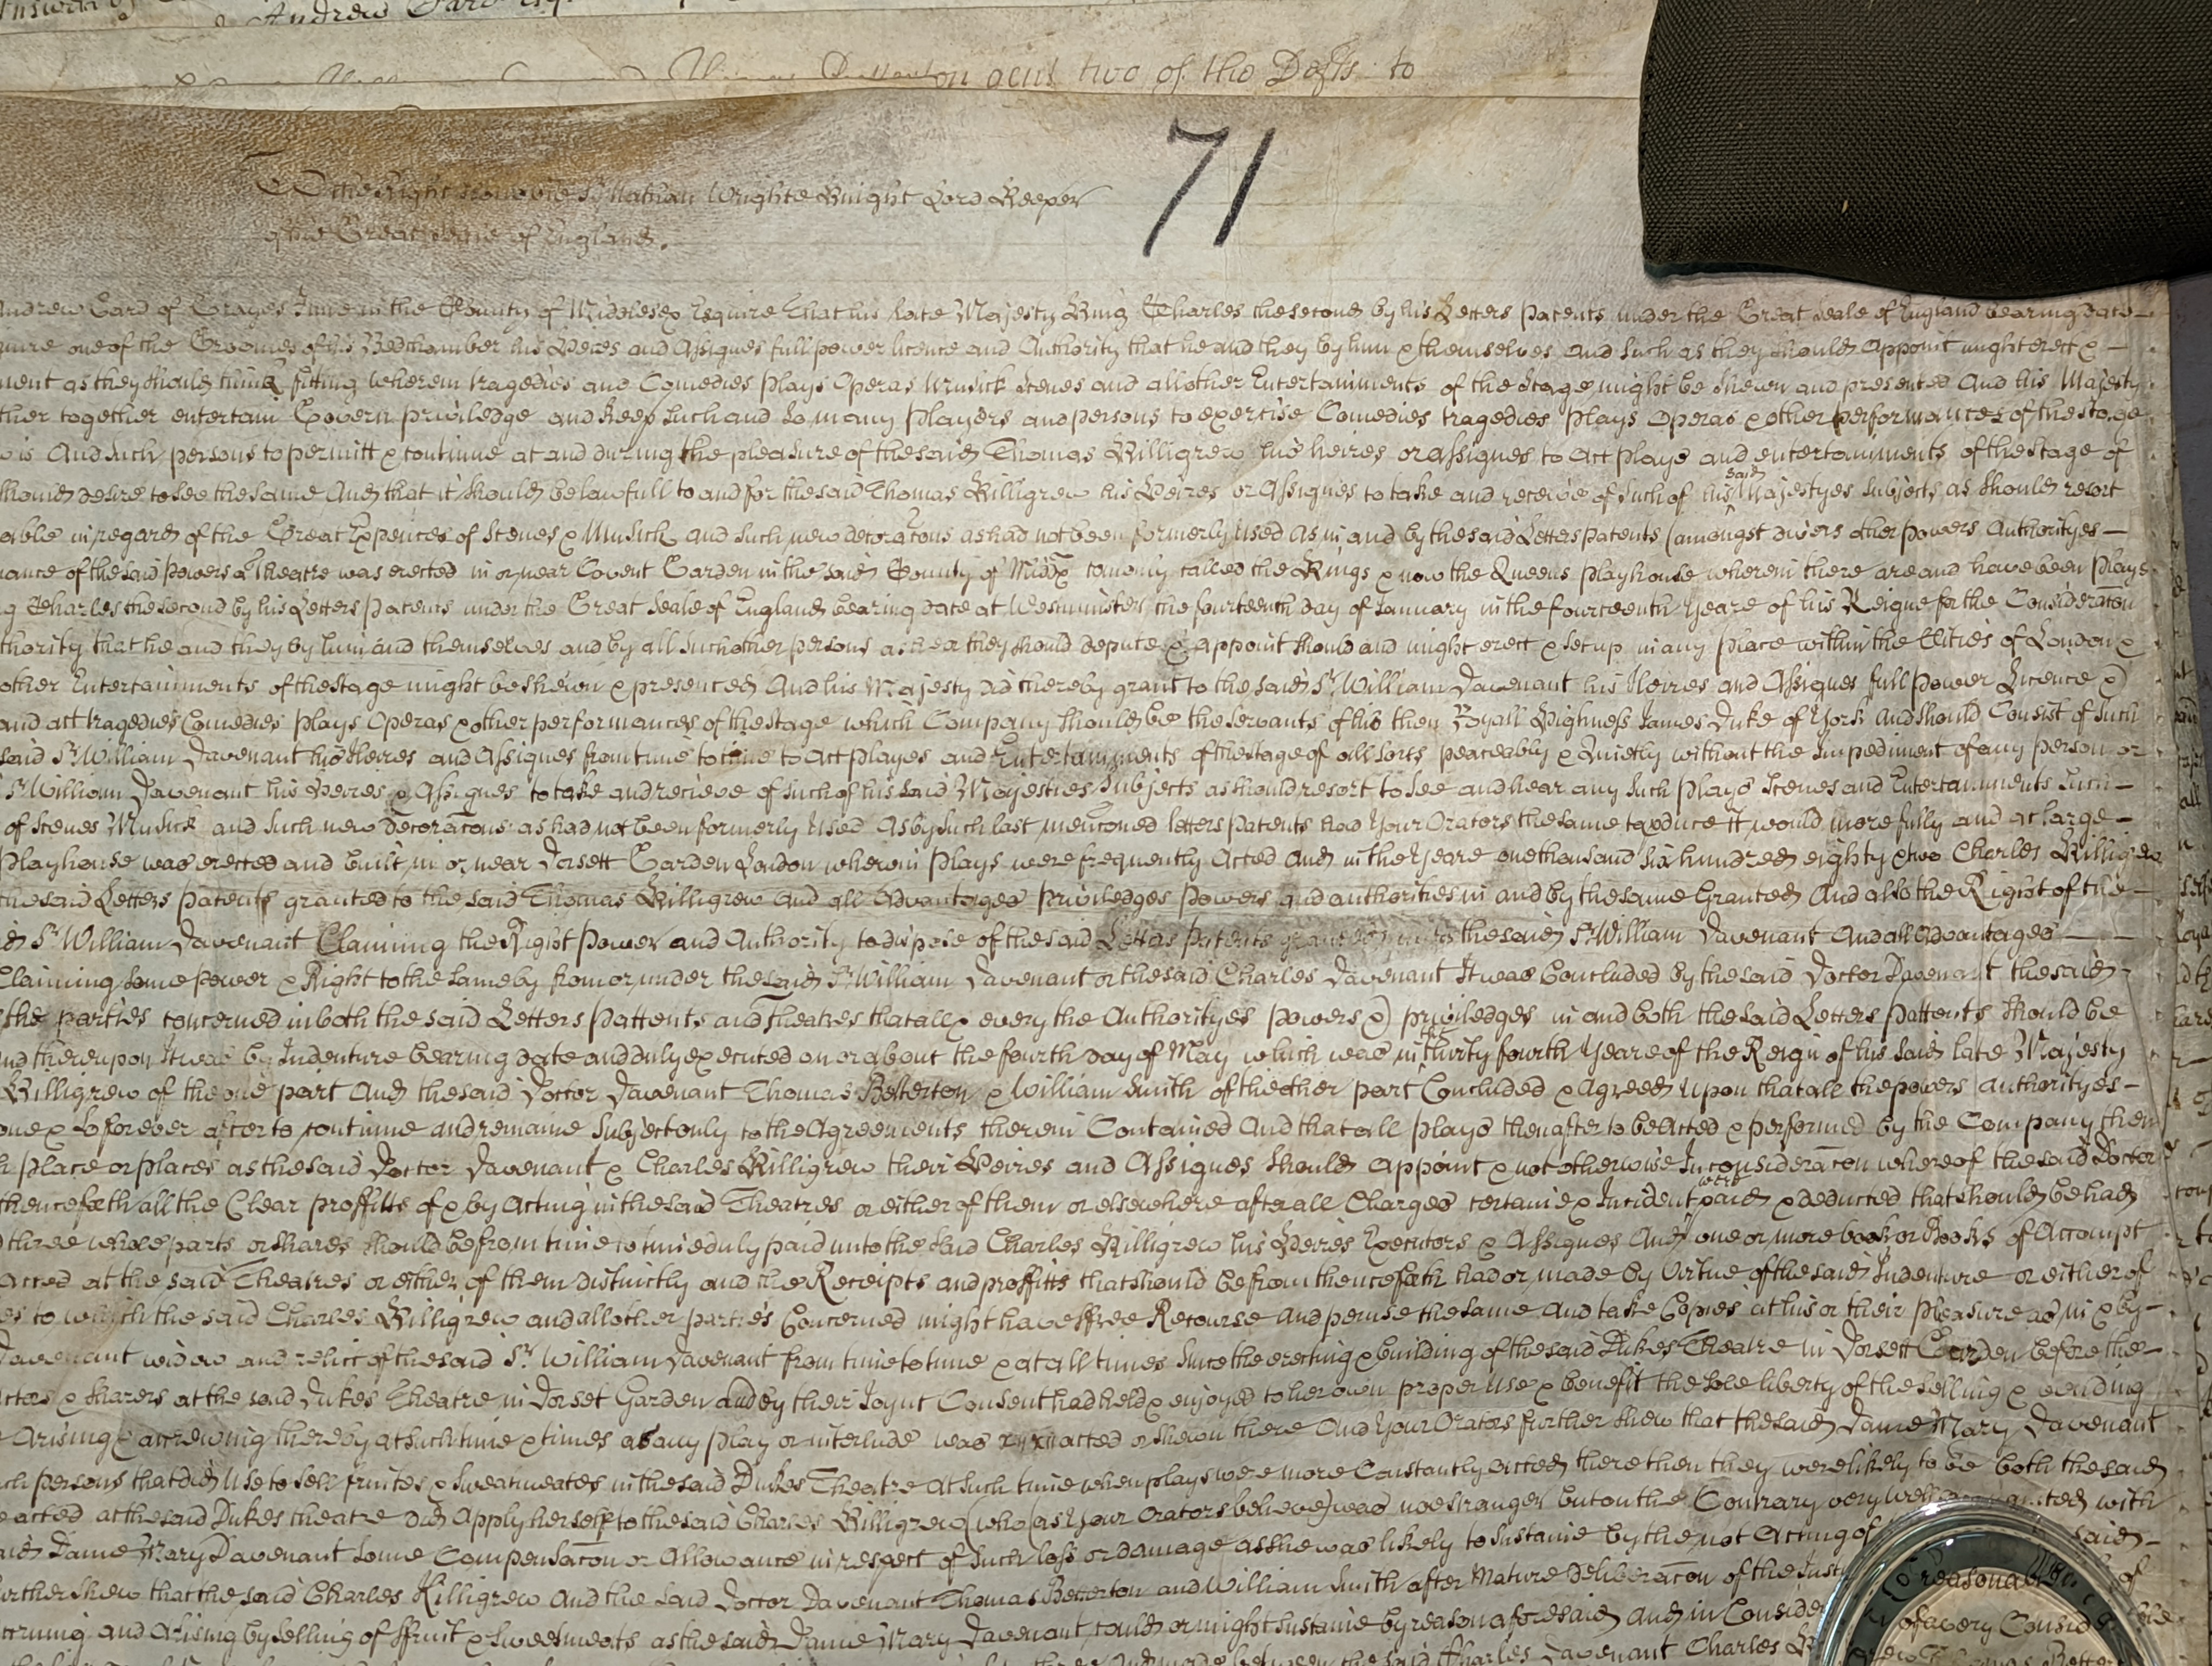 Andrew Card Esq
gent two of the Defts to
71
To the Right Honoble Sr Nathan Wrighte Knight Lord Keeper
of the Great Seale of England.
Andrew Card of Grayes Inne in the County of Middlesex Esquire That his late Majesty King Charles the second by his Letters Patents under the Great Seale of England bearing date
one of the Groomes of his Bedchamber his Heires and Assignes full power licence and Authority that he and they by him & themselves and such as they should appoint might erect &
ment as they should think fitting wherein tragedies and Comedies plays Operas Musick Scenes and all other Entertainments of the Stage might be shewn and presented And his Majesty
ther together entertain Govern priviledge and keep such and so many players and persons to exercise Comedies tragedies plays Operas & other performances of the stage
And such persons to permitt & continue at and during the pleasure of the said Thomas Killigrew his heires or assignes to act plays and entertainments of the Stage of
should desire to see the same And that it should be lawfull to and for the said Thomas Killigrew his Heires or Assignes to take and receive of such of his said Majestyes subjects as should resort
able in regard of the Great Expences of Scenes & Musick and such new decoracons as had not been formerly used As in and by the said Letters patents (amongst divers other powers Authorityes
ance of the said powers a Theatre was erected in or near Covent Garden in the said County of Middx comonly called the Kings & now the Queens playhouse wherein there are and have been plays
g Charles the second by his Letters Patents under the Great Seale of England bearing date at Westminster the fourteenth day of January in the fourteenth Yeare of his Reigne for the Consideracon
thority that he and they by him and themselves and by all such other persons as he or they should depute & appoint should and might erect & set up in any place within the Cities of London &
other Entertainments of the stage might be shewn & presented And his Majesty did thereby grant to the said Sr William Davenant his Heires and Assignes full power Licence &
and act tragedies Comedies plays Operas & other performances of the stage which Company should be the servants of his then Royall Highness James Duke of York And should Consist of such
said Sr William Davenant his Heires and Assignes from time to time to act playes and Entertainments of the stage of all sorts peaceably & Quietly without the Impediment of any person or
Sr William Davenant his Heires & Assignes to take and recieve of such of his said Majesties Subjects as should resort to see and hear any such plays Scenes and Entertainments such
of Scenes Musick and such new Decoracons as had not been formerly used As by such last menconed letters patents had Your Orators the same to produce it would more fully and at large
Playhouse was erected and built in or near Dorsett Garden London wherein plays were frequently Acted And in the Yeare one thousand six hundred eighty & two Charles Killigrew
the said Letters patents granted to the said Thomas Killigrew And all Advantages priviledges powers and authorities in and by the same Granted And also the Right of the
Sr William Davenant Claiming the Right Power and Authority to dispose of the said Letters patents granted unto the said Sr William Davenant And all Advantages
Claiming some power & Right to the same by from or under the said Sr William Davenant or the said Charles Davenant It was Concluded by the said Doctor Davenant the said
the parties concerned in both the said Letters Pattents and Theatres that all & every the Authorityes powers & priviledges in and both the said Letters Pattents should be
And thereupon It was by Indenture bearing date and duly executed on or about the fourth day of May which was in the thirty fourth Yeare of the Reign of his said late Majesty
Killigrew of the one part And the said Doctor Davenant Thomas Betterton & William Smith of the other part Concluded & Agreed upon that all the powers authorityes
one & so forever after to continue and remaine Subject only to the Agreements therein Contained And that all plays thenafter to be Acted & performed by the Company then
h place or places as the said Doctor Davenant & Charles Killigrew their Heires and Assignes should appoint & not otherwise In consideracon whereof the said Doctor
thenceforth all the Clear proffitts of & by Acting in the said Theatres or either of them or elsewhere after all Charges certaine & Incident were paid & deducted that should be had
three whole parts or shares should be from time to time duly paid unto the said Charles Killigrew his Heires Executors & Assignes And one or more book or Books of Accompt
Acted at the said Theatres or either of them distinctly and the Receipts and proffitts that should be from thenceforth had or made by Virtue of the said Indenture or either of
es to which the said Charles Killigrew and all other parties Concerned might have ffree Recourse and peruse the same And take Copies at his or their pleasure as in & by
Davenant widow and relict of the said Sr William Davenant from time to time & at all times since the erecting & building of the said Dukes Theatre in Dorsett Garden before the
ctors & sharers at the said Dukes Theatre in Dorset Garden and by their Joynt Consent had held & enjoyed to her own proper use & benefit the sole liberty of the selling & vending
Arising & accrewing thereby at such time & times as any play or interlude was acted or shewn there And Your Orators further shew that the said Dame Mary Davenant
ch persons that did Use to sell fruites & sweatmeates in the said Dukes Theatre At such time when plays were more Constantly acted there then they were likely to be both the said
acted at the said Dukes theatre did Apply herself to the said Charles Killigrew (who (as Your Orators believe) was noe stranger but on the Contrary very well acquainted with
said Dame Mary Davenant some Compensacon or Allowance in respect of such loss or damage as she was likely to sustaine by the not Acting of said
urther shew that the said Charles Killigrew And the said Doctor Davenant Thomas Betterton and William Smith after Mature Deliberacon of the Just reasonable of
cruing and Arising by selling of ffruit & Sweetmeats as the said Dame Mary Davenant could or might sustaine by reason aforesaid And in Consider of a very Consid
between the said Charles Davenant Charles